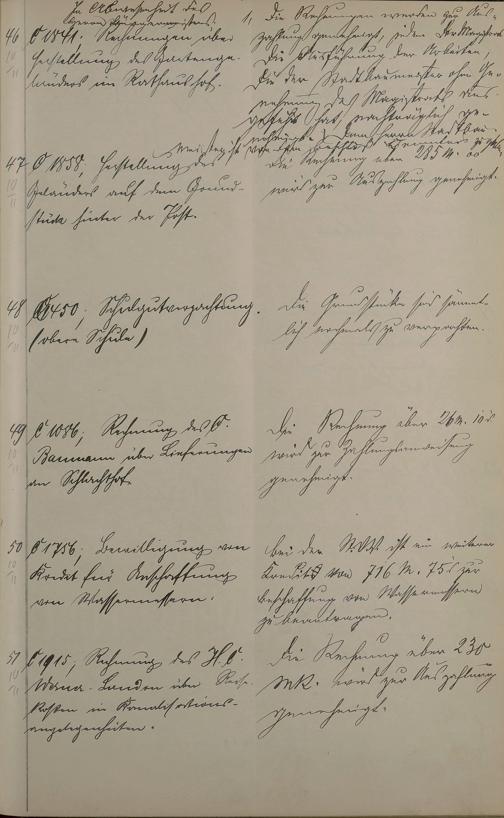 In Abwesenheit des
Herrn Bürgermeisters.
46 C 1841. Rechnungen über
Herstellung des Gartenge-
länders im Rathaushof.
1, Die Rechnungen werden zur Aus-
zahlung genehmigt, jedoch der Magistrat
die Ausführung der Arbeiten,
die der Stadtbaumeister ohne Ge-
nehmigung des Magistrats aus-
geführt hat, nachträglich ge-
47 C 1858. Herstellung des
Geländers auf dem Grund-
stück hinter der Post.
die Rechnung über 235 M.
wird zur Auszahlung genehmigt.
48 C 1450; Schulgutverpachtung.
(obere Schule)
Die Grundstücke sind sämmt-
lich nochmals zu verpachten.
49 C 1086; Rechnung des C.
Baumann über Lieferungen
am Schlachthof.
Die Rechnung über 26 M. 10
wird zur Zahlungsanweisung
genehmigt.
50 C 1756; Bewilligung von
Kredit für Anschaffung
von Wassermessern.
bei der St.V.V. ist ein weiterer
Kredit von 716 M. 75 zur
Beschaffung von Wassermessern
zu beantragen.
51 C 1915; Rechnung des H. C.
London über Reise-
kosten in Kanalisations-
angelegenheiten.
Die Rechnung über 230
Mk. wird zur Auszahlung
genehmigt.